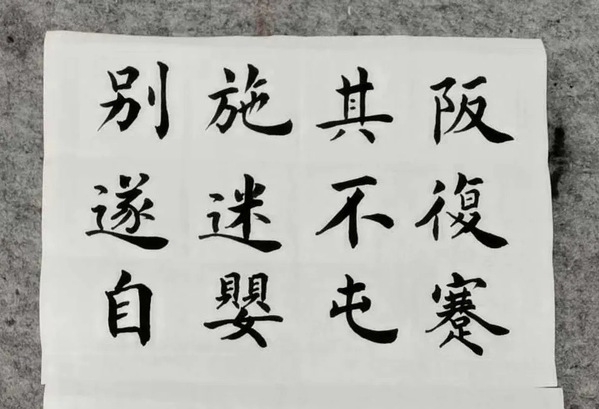 别施其阪
遂迷不復
自嬰屯蹇